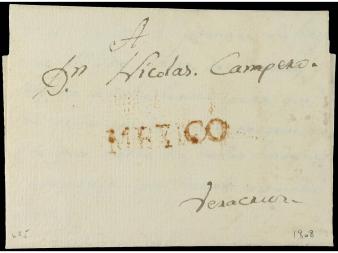 A
Dn Nicolas. Campero.
MEXICO
Veracruz.
1808